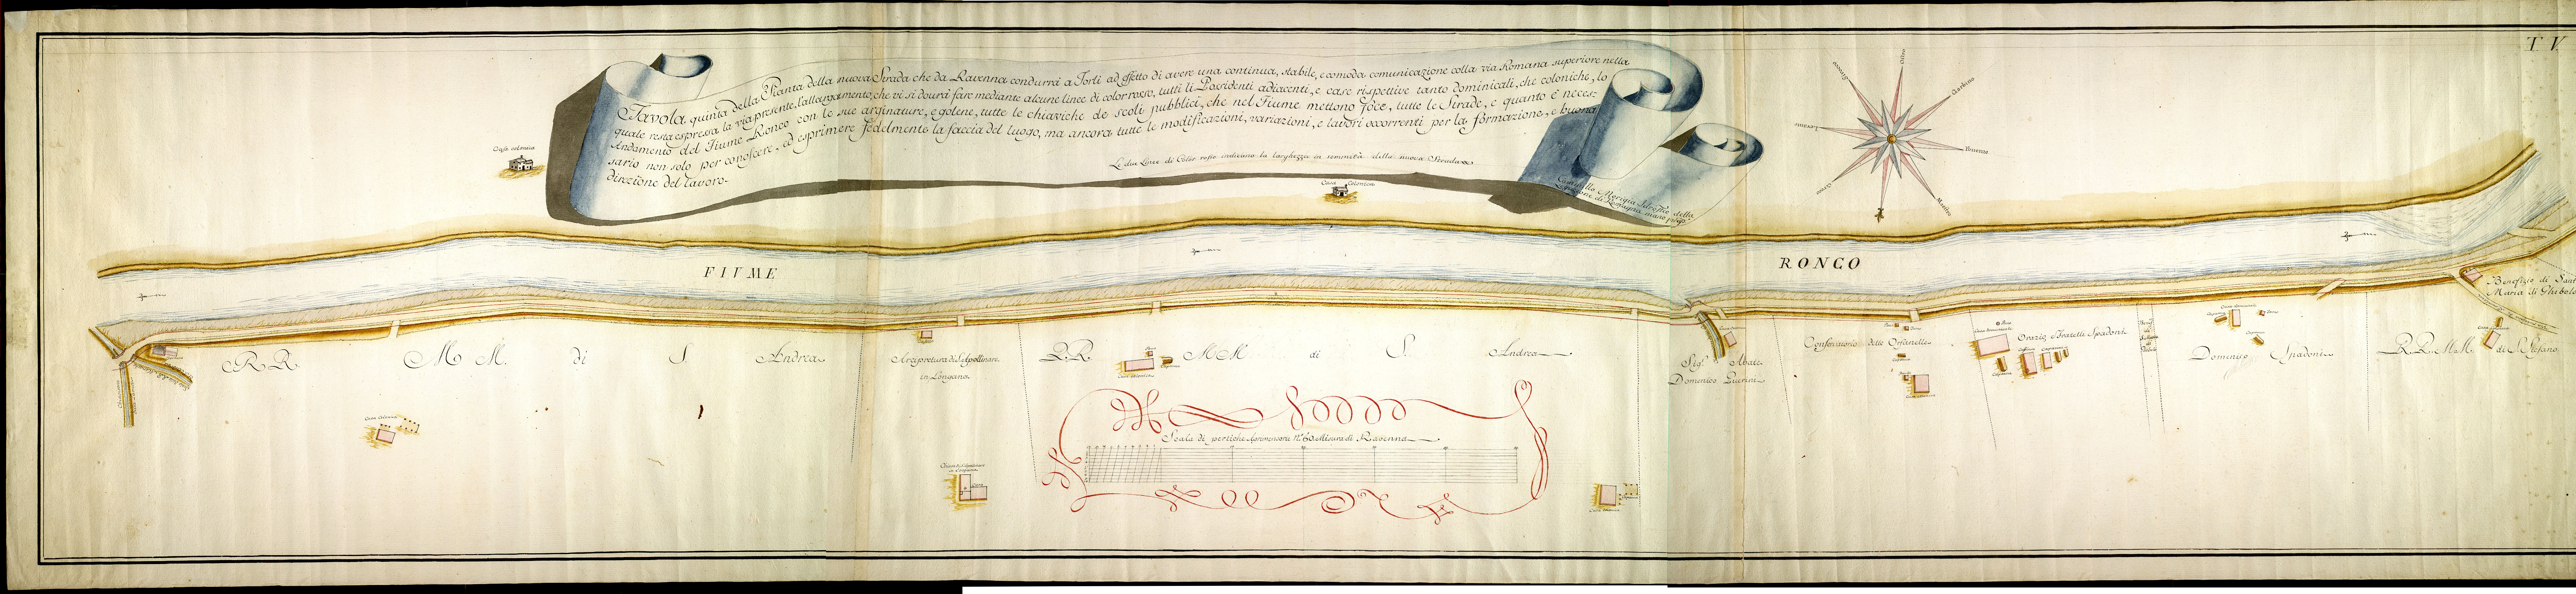 T. V.
Tavola quinta della Pianta della nuova Strada che da Ravenna condurrà a Forlì ad effetto di avere una continua, stabile, e comoda comunicazione colla via Romana superiore nella
quale resta espressa la via presente, l'allargamento, che vi si dovrà fare mediante alcune linee di color rosso, tutti li Possidenti adiacenti, e case rispettive tanto dominicali, che coloniche, lo
Andamento del Fiume Ronco con le sue arginature, e golene, tutte le chiaviche de scoli pubblici, che nel Fiume mettono foce, tutte le Strade, e quanto è neces:
sario non solo per conoscere, ed esprimere fedelmente la faccia del luogo, ma ancora tutte le modificazioni, variazioni, e lavori occorrenti per la formazione, e buona
direzione del lavoro.
Le due Linee di Color rosso indicano la larghezza in sommità della nuova Strada
Camillo Morigia Idrostico della
Legazione di Romagna mano prop.
Casa colonica
Casa Colonica
Ostro
Garbino
Ponente
Maestro
Greco
Levante
Sirocco
FIUME
RONCO
Benefizio di Sant
Maria di Ghibolo
RR. MM. di S. Andrea
Arcipretura di S. Apollinare
in Longana
RR. MM. di S. Andrea
Casa colonica
Sig. Abate
Domenico Guerini
Conservatorio delle Orfanelle
Casa dominicale
Orazio, e Fratelli Spadoni
Domenico Spadoni
RR. MM. di S. Stefano
Casa colonica
Chiesa di S. Apollinare
in Longana
Casa
Scala di pertiche Agrimensorie N.º 60 Misura di Ravenna
Casa colonica
Casa colonica